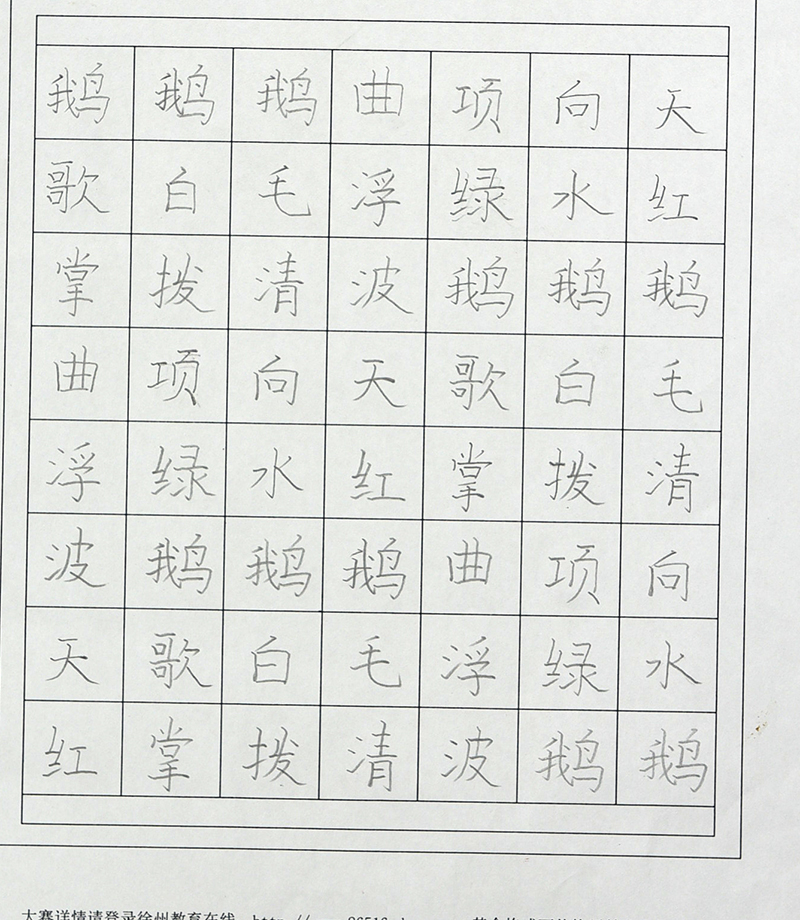 鹅鹅鹅曲项向天
歌白毛浮绿水红
掌拨清波鹅鹅鹅
曲项向天歌白毛
浮绿水红掌拨清
波鹅鹅鹅曲项向
天歌白毛浮绿水
红掌拨清波鹅鹅
大赛详情请登录徐州教育在线